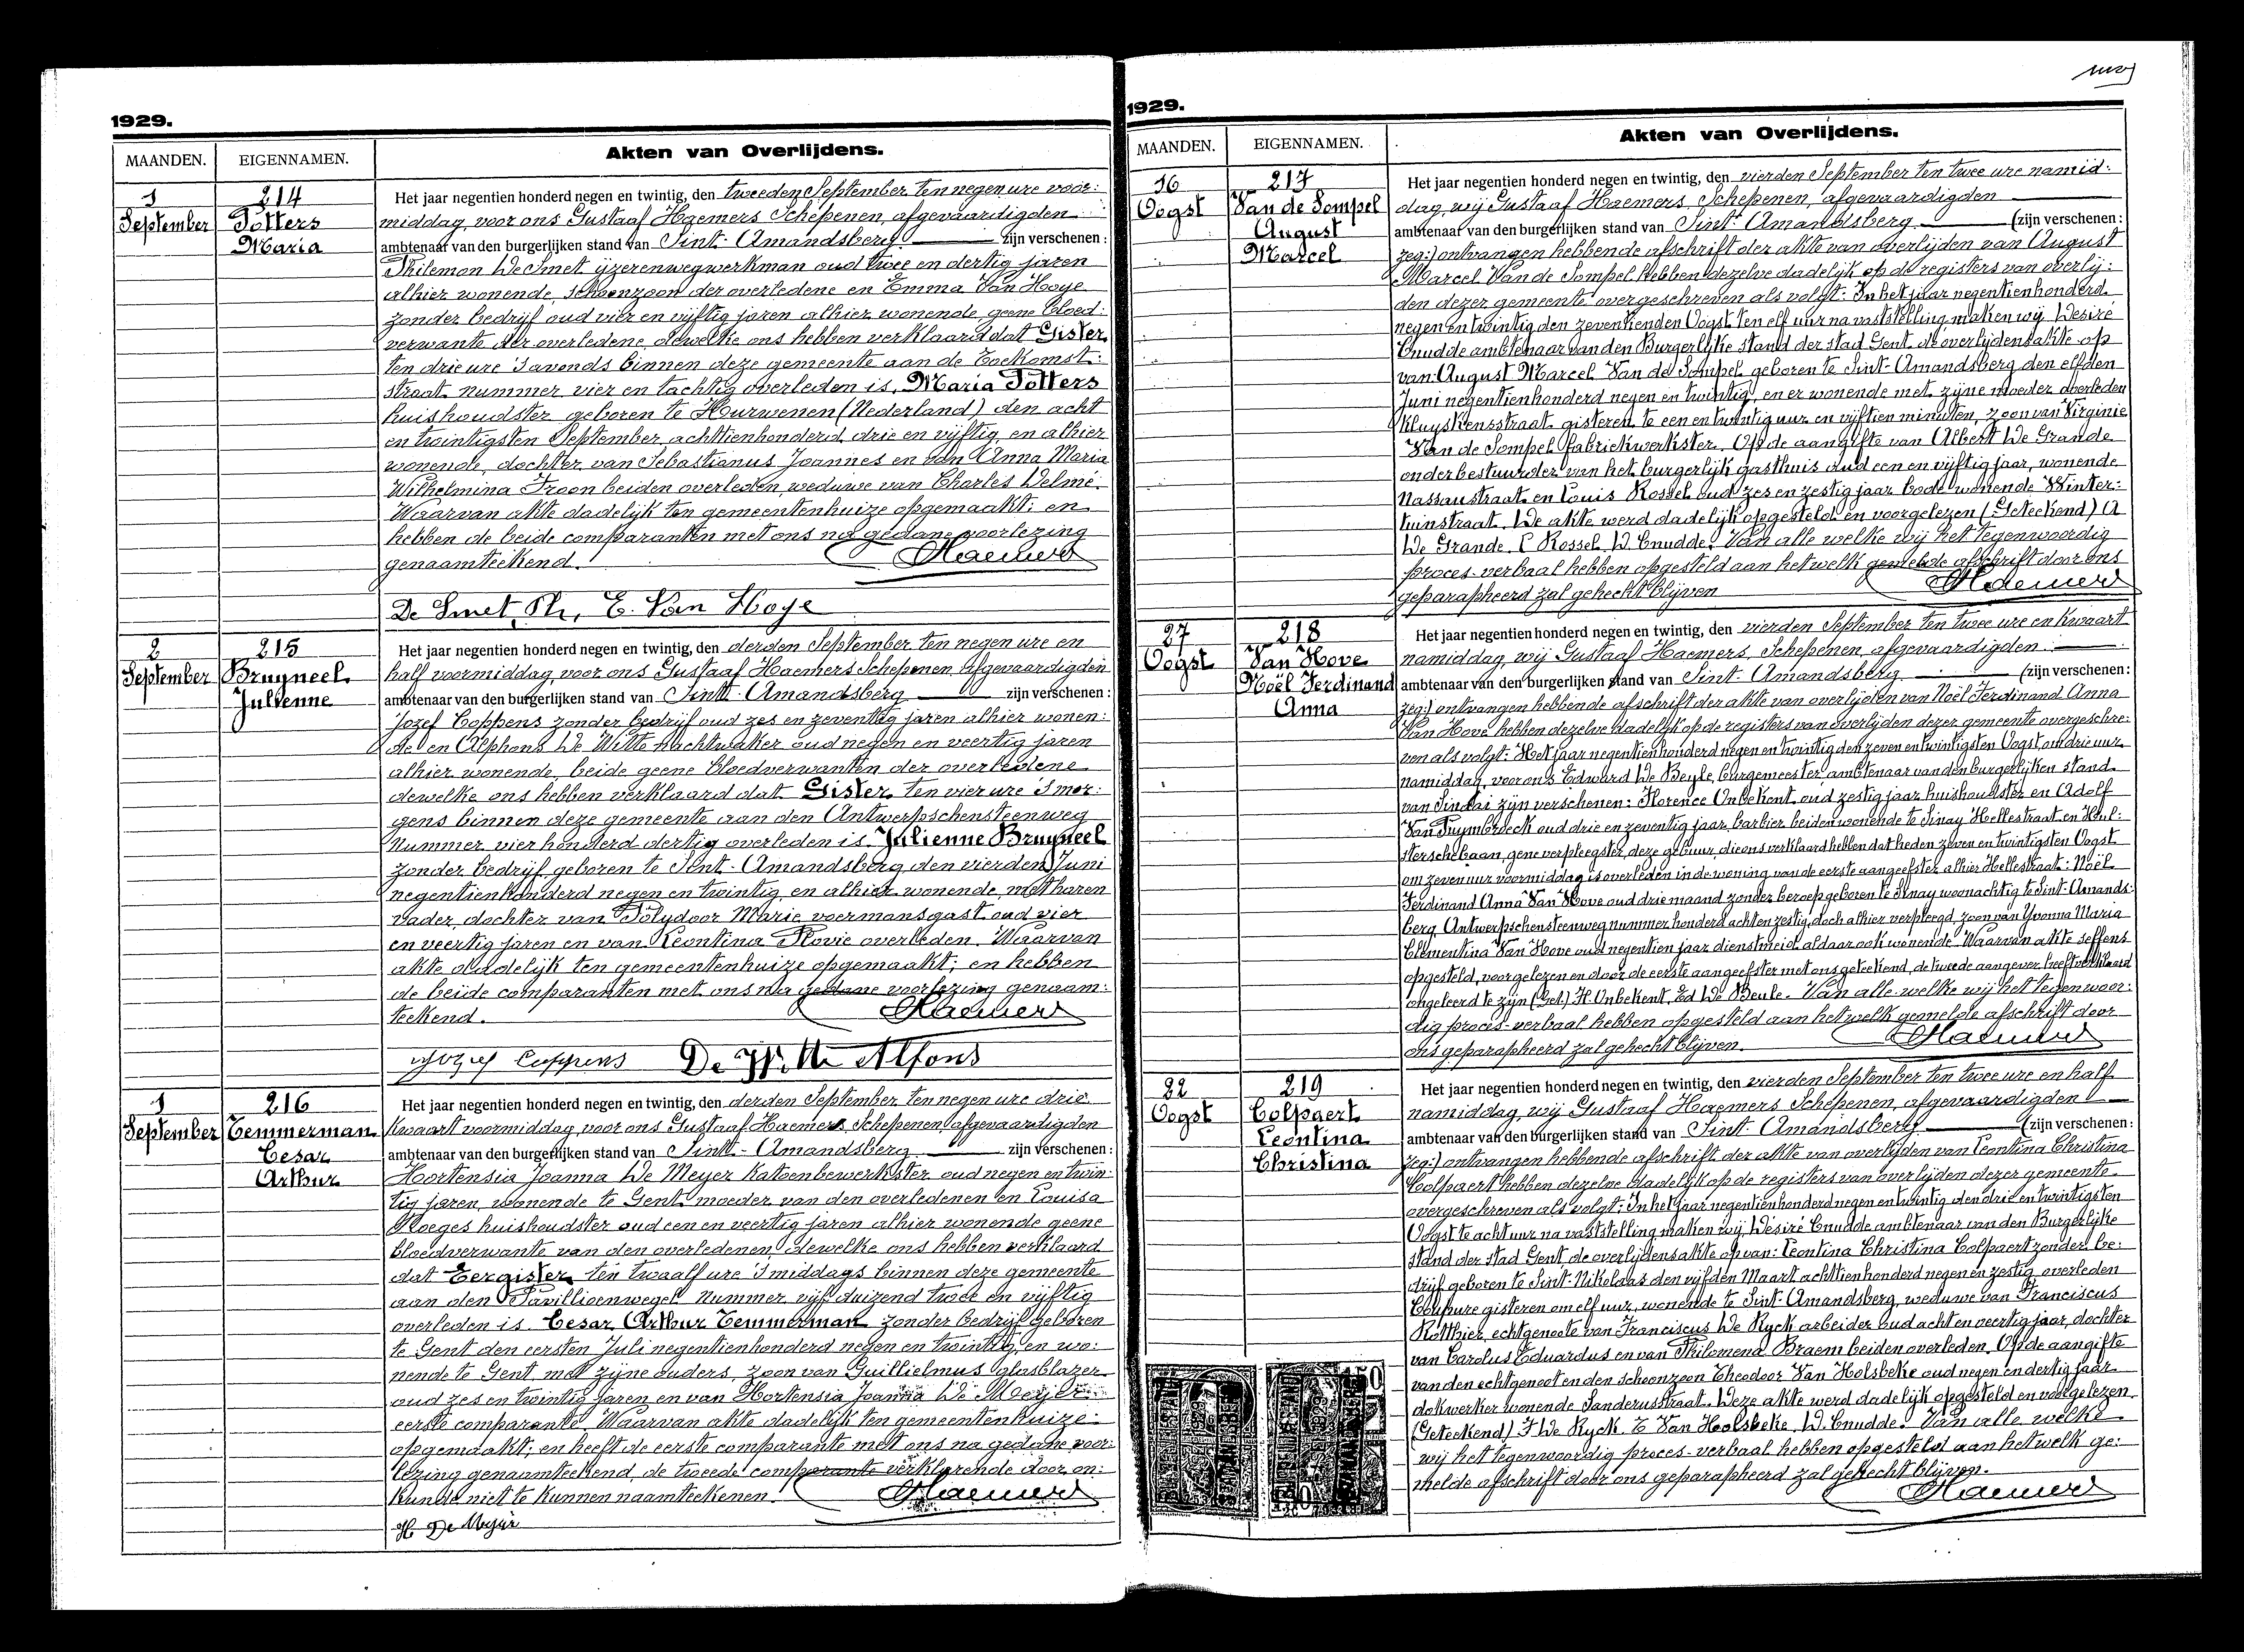 1929.
MAANDEN. EIGENNAMEN. Akten van Overlijdens.
1 September
214
Potters
Maria
Het jaar negentien honderd negen en twintig, den tweeden September ten negen ure voor:
middag, voor ons Gustaaf Haemers Schepenen, afgevaardigden
ambtenaar van den burgerlijken stand van Sint-Amandsberg. zijn verschenen:
Philemon De Smet ijzerenwegwerkman oud twee en dertig jaren
alhier wonende, schoonzoon der overledene en Emma Van Hoye
zonder bedrijf oud vier en vijftig jaren alhier wonende, geene bloed:
verwante der overledene, dewelke ons hebben verklaard dat Gister
ten drie ure 's avonds binnen deze gemeente aan de Toekomst:
straat nummer vier en tachtig overleden is, Maria Potters
huishoudster geboren te Hurwenen (Nederland) den acht
en twintigsten September achttienhonderd drie en vijftig, en alhier
wonende, dochter van Sebastianus Joannes en van Anna Maria
Wilhelmina Troon beiden overleden, weduwe van Charles Delmé.
Waarvan akte dadelijk ten gemeentenhuize opgemaakt; en
hebben de beide comparanten met ons na gedane voorlezing
genaamteekend. Haemers
De Smet Ph, E. Van Hoye
2 September
215
Bruyneel
Julienne
Het jaar negentien honderd negen en twintig, den derden September ten negen ure en
half voormiddag voor ons Gustaaf Haemers Schepenen, afgevaardigden
ambtenaar van den burgerlijken stand van Sint-Amandsberg zijn verschenen:
Jozef Coppens zonder bedrijf oud zes en zeventig jaren alhier wonen:
de en Alphons De Witte nachtwaker oud negen en veertig jaren
alhier wonende, beide geene bloedverwanten der overledene
dewelke ons hebben verklaard dat Gister ten vier ure 's mor:
gens binnen deze gemeente aan den Antwerpschensteenweg
nummer vier honderd dertig overleden is Julienne Bruyneel
zonder bedrijf geboren te Sint-Amandsberg den vierden Juni
negentienhonderd negen en twintig, en alhier wonende, met haren
vader, dochter van Polydoor Marie voermansgast oud vier
en veertig jaren en van Leontina Plovie overleden. Waarvan
akte dadelijk ten gemeentenhuize opgemaakt; en hebben
de beide comparanten met ons na gedane voorlezing genaam:
teekend. Haemers
Jozef Coppens De Witte Alfons
1 September
216
Temmerman
Cesar
Arthur
Het jaar negentien honderd negen en twintig, den derden September ten negen ure drie
kwaart voormiddag, voor ons Gustaaf Haemers Schepenen afgevaardigden
ambtenaar van den burgerlijken stand van Sint-Amandsberg zijn verschenen:
Hortensia Joanna De Meyer Katoenbewerkster oud negen en twin:
tig jaren, wonende te Gent, moeder van den overledenen en Louisa
Ploeges huishoudster oud een en veertig jaren alhier wonende geene
bloedverwante van den overledenen, dewelke ons hebben verklaard
dat Eergister ten twaalf ure 's middags binnen deze gemeente
aan den Pavillioenwegel nummer vijf duizend twee en vijftig
overleden is Cesar Arthur Temmerman zonder bedrijf geboren
te Gent den eersten Juli negentienhonderd negen en twintig, en wo:
nende te Gent met zijne ouders, zoon van Guillielmus glasblazer
oud zes en twintig jaren en van Hortensia Joanna De Meyer
eerste comparante. Waarvan akte dadelijk ten gemeentenhuize
opgemaakt; en heeft de eerste comparante met ons na gedane voor:
lezing genaamteekend, de tweede comparante verklarende door on:
kunde niet te kunnen naamteekenen. Haemers
H De Meyer
1929.
MAANDEN. EIGENNAMEN. Akten van Overlijdens.
16 Oogst
217
Van de Sompel
August
Marcel
Het jaar negentien honderd negen en twintig, den vierden September ten twee ure namid:
dag, wij Gustaaf Haemers, Schepenen, afgevaardigden
ambtenaar van den burgerlijken stand van Sint-Amandsberg (zijn verschenen:
zeg:) ontvangen hebbende afschrift der akte van overlijden van August
Marcel Van de Sompel hebben dezelve dadelijk op de registers van overlij:
den dezer gemeente overgeschreven als volgt: In het jaar negentienhonderd
negen en twintig den zeventienden Oogst ten elf uur na vaststelling, maken wij Désiré
Cnudde ambtenaar van den Burgerlijke stand der stad Gent, de overlijdensakte op
van: August Marcel Van de Sompel, geboren te Sint-Amandsberg den elfden
Juni negentienhonderd negen en twintig, en er wonende met zijne moeder, overleden
Kluyskensstraat gisteren te een en twintig uur en vijftien minuten, zoon van Virginie
Van de Sompel fabriekwerkster. Op de aangifte van Albert De Grande
onderbestuurder van het burgerlijk gasthuis oud een en vijftig jaar, wonende
Nassaustraat en Louis Rossel oud zes en zestig jaar bode wonende Winter:
tuinstraat. De akte werd dadelijk opgesteld en voorgelezen (Geteekend) A
De Grande. L Rossel. D. Cnudde. Van alle welke wij het tegenwoordig
proces-verbaal hebben opgesteld aan hetwelk gemelde afschrift door ons
geparapheerd zal gehecht blijven Haemers
27 Oogst
218
Van Hove
Noël Ferdinand
Anna
Het jaar negentien honderd negen en twintig, den vierden September ten twee ure en kwaart
namiddag, wij Gustaaf Haemers, Schepenen, afgevaardigden
ambtenaar van den burgerlijken stand van Sint-Amandsberg (zijn verschenen:
zeg:) ontvangen hebbende afschrift der akte van overlijden van Noël Ferdinand Anna
Van Hove hebben dezelve dadelijk op de registers van overlijden dezer gemeente overgeschre:
ven als volgt: Het jaar negentienhonderd negen en twintig den zeven en twintigsten Oogst, om drie uur
namiddag, voor ons Edward De Beule, burgemeester ambtenaar van den burgerlijken stand
van Sinaai zijn verschenen: Florence Onbekent oud zestig jaar huishoudster en Adolf
Van Puymbroeck oud drie en zeventig jaar, barbier beiden wonende te Sinay Hellestraat en Hul:
sterschebaan, gene verpleegster, deze gebuur, die ons verklaard hebben dat heden zeven en twintigsten Oogst
om zeven uur voormiddag is overleden in de woning van de eerste aangeefster alhier Hellestraat: Noël
Ferdinand Anna Van Hove oud drie maand zonder beroep geboren te Sinay woonachtig te Sint-Amands:
berg Antwerpschensteenweg nummer honderd acht en zestig, doch alhier verpleegd, zoon van Yvonna Maria
Clementina Van Hove oud negentien jaar dienstmeid, aldaar ook wonende. Waarvan akte seffens
opgesteld, voorgelezen en door de eerste aangeefster met ons geteekend, de tweede aangever heeft verklaard
ongeleerd te zijn (Get.) F. Onbekent, Ed De Beule. Van alle welke wij het tegenwoor:
dig proces-verbaal hebben opgesteld aan hetwelk gemelde afschrift door
ons geparapheerd zal gehecht blijven. Haemers
22 Oogst
219
Colpaert
Leontina
Christina
Het jaar negentien honderd negen en twintig, den vierden September ten twee ure en half
namiddag, wij Gustaaf Haemers Schepenen, afgevaardigden
ambtenaar van den burgerlijken stand van Sint-Amandsberg (zijn verschenen:
zeg:) ontvangen hebbende afschrift der akte van overlijden van Leontina Christina
Colpaert hebben dezelve dadelijk op de registers van overlijden dezer gemeente
overgeschreven als volgt: In het jaar negentienhonderd negen en twintig den drie en twintigsten
Oogst te acht uur na vaststelling maken wij, Désiré Cnudde ambtenaar van den Burgerlijke
stand der stad Gent, de overlijdensakte op van: Leontina Christina Colpaert zonder be:
drijf geboren te Sint-Nikolaas den vijfden Maart achttienhonderd negen en zestig overleden
Coupure gisteren om elf uur, wonende te Sint-Amandsberg, weduwe van Franciscus
Rotthier, echtgenoote van Franciscus De Ryck arbeider oud acht en veertig jaar, dochter
van Carolus Eduardus en van Philomena Braem beiden overleden. Op de aangifte
van den echtgenoot en den schoonzoon Theodoor Van Holsbeke oud negen en dertig jaar
dokwerker wonende Sanderusstraat. Deze akte werd dadelijk opgesteld en voorgelezen
(Geteekend) F De Ryck. T. Van Hoolsbeke. D. Cnudde. Van alle welke
wij het tegenwoordig proces-verbaal hebben opgesteld aan hetwelk ge:
melde afschrift door ons geparapheerd zal gehecht blijven.
Haemers